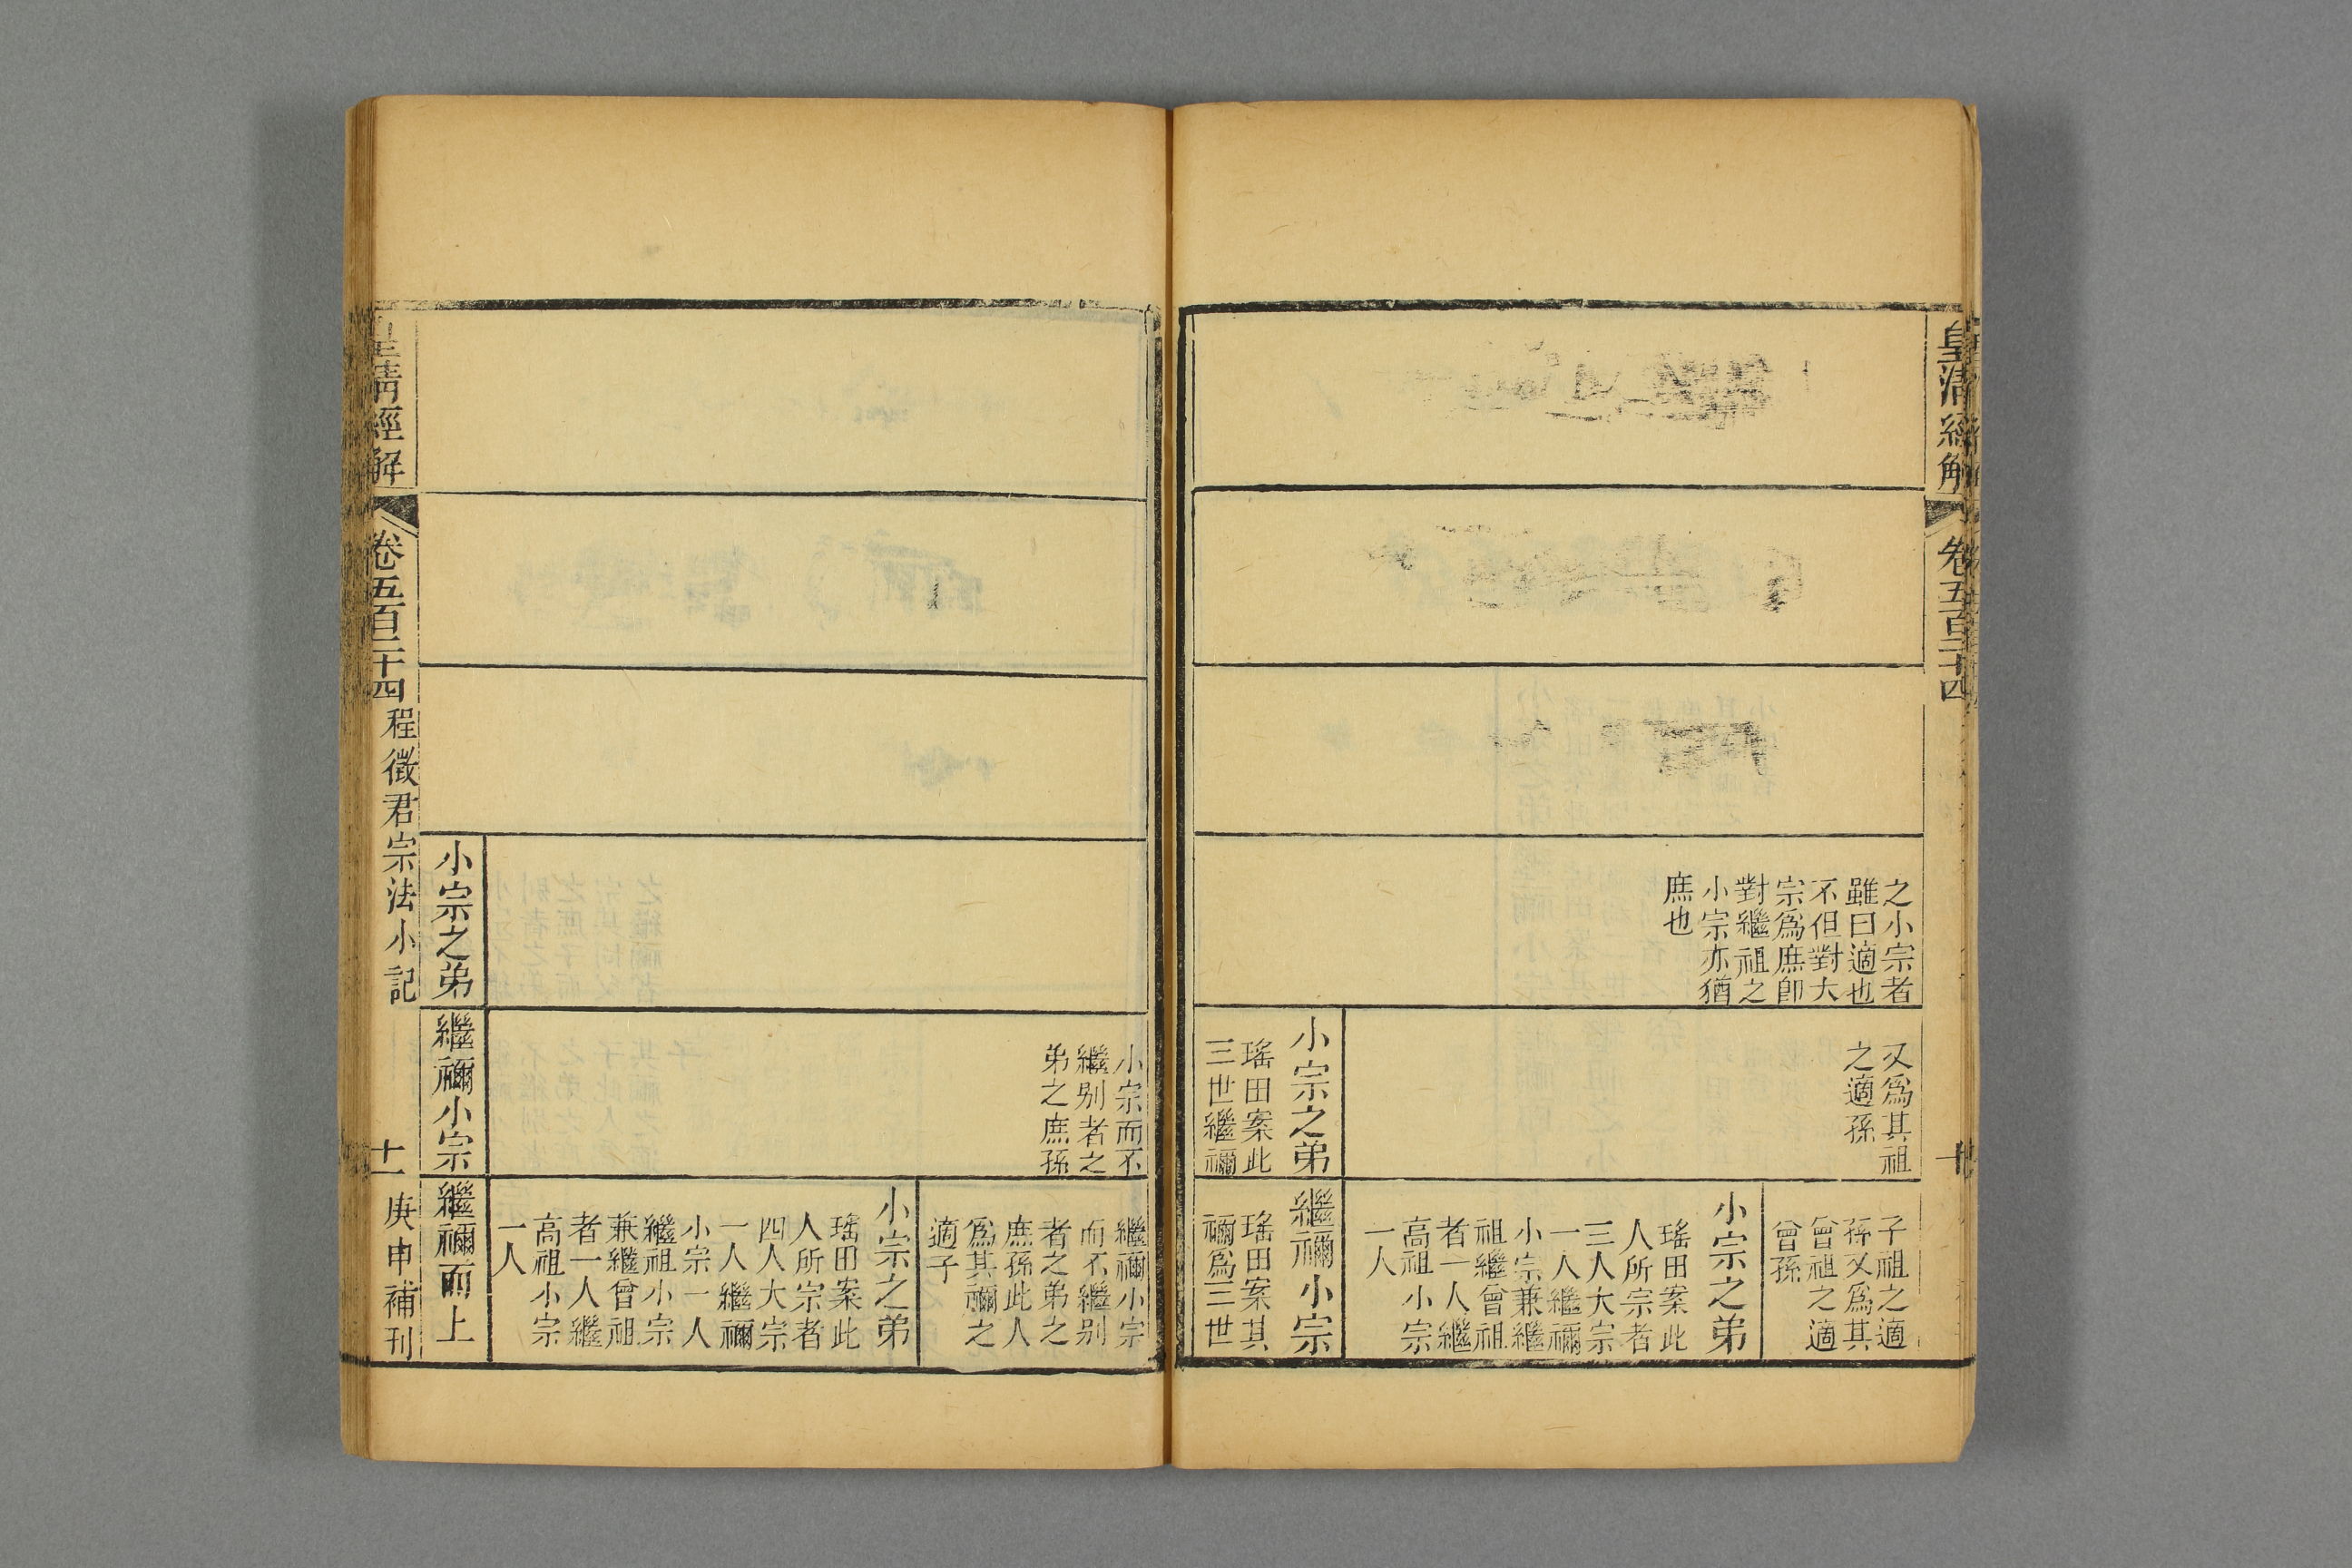 皇清經解
卷五百二十四
十
之小宗者
雖曰適也
不但對大
宗爲庶卽
對繼祖之
小宗亦猶
庶也
又爲其祖
之適孫
小宗之弟
瑤田案此
三世繼禰
子祖之適
孫又爲其
曾祖之適
曾孫
小宗之弟
瑤田案此
人所宗者
三人大宗
一人繼禰
小宗兼繼
祖繼曾祖
者一人繼
高祖小宗
一人
繼禰小宗
瑤田案其
禰爲三世
小宗而不
繼別者之
弟之庶孫
繼禰小宗
而不繼別
者之弟之
庶孫此人
爲其禰之
適子
小宗之弟
瑤田案此
人所宗者
四人大宗
一人繼禰
小宗一人
繼祖小宗
兼繼曾祖
者一人繼
高祖小宗
一人
小宗之弟
繼禰小宗
繼禰而上
皇清經解
卷五百二十四
程徵君宗法小記
十一
庚申補刊